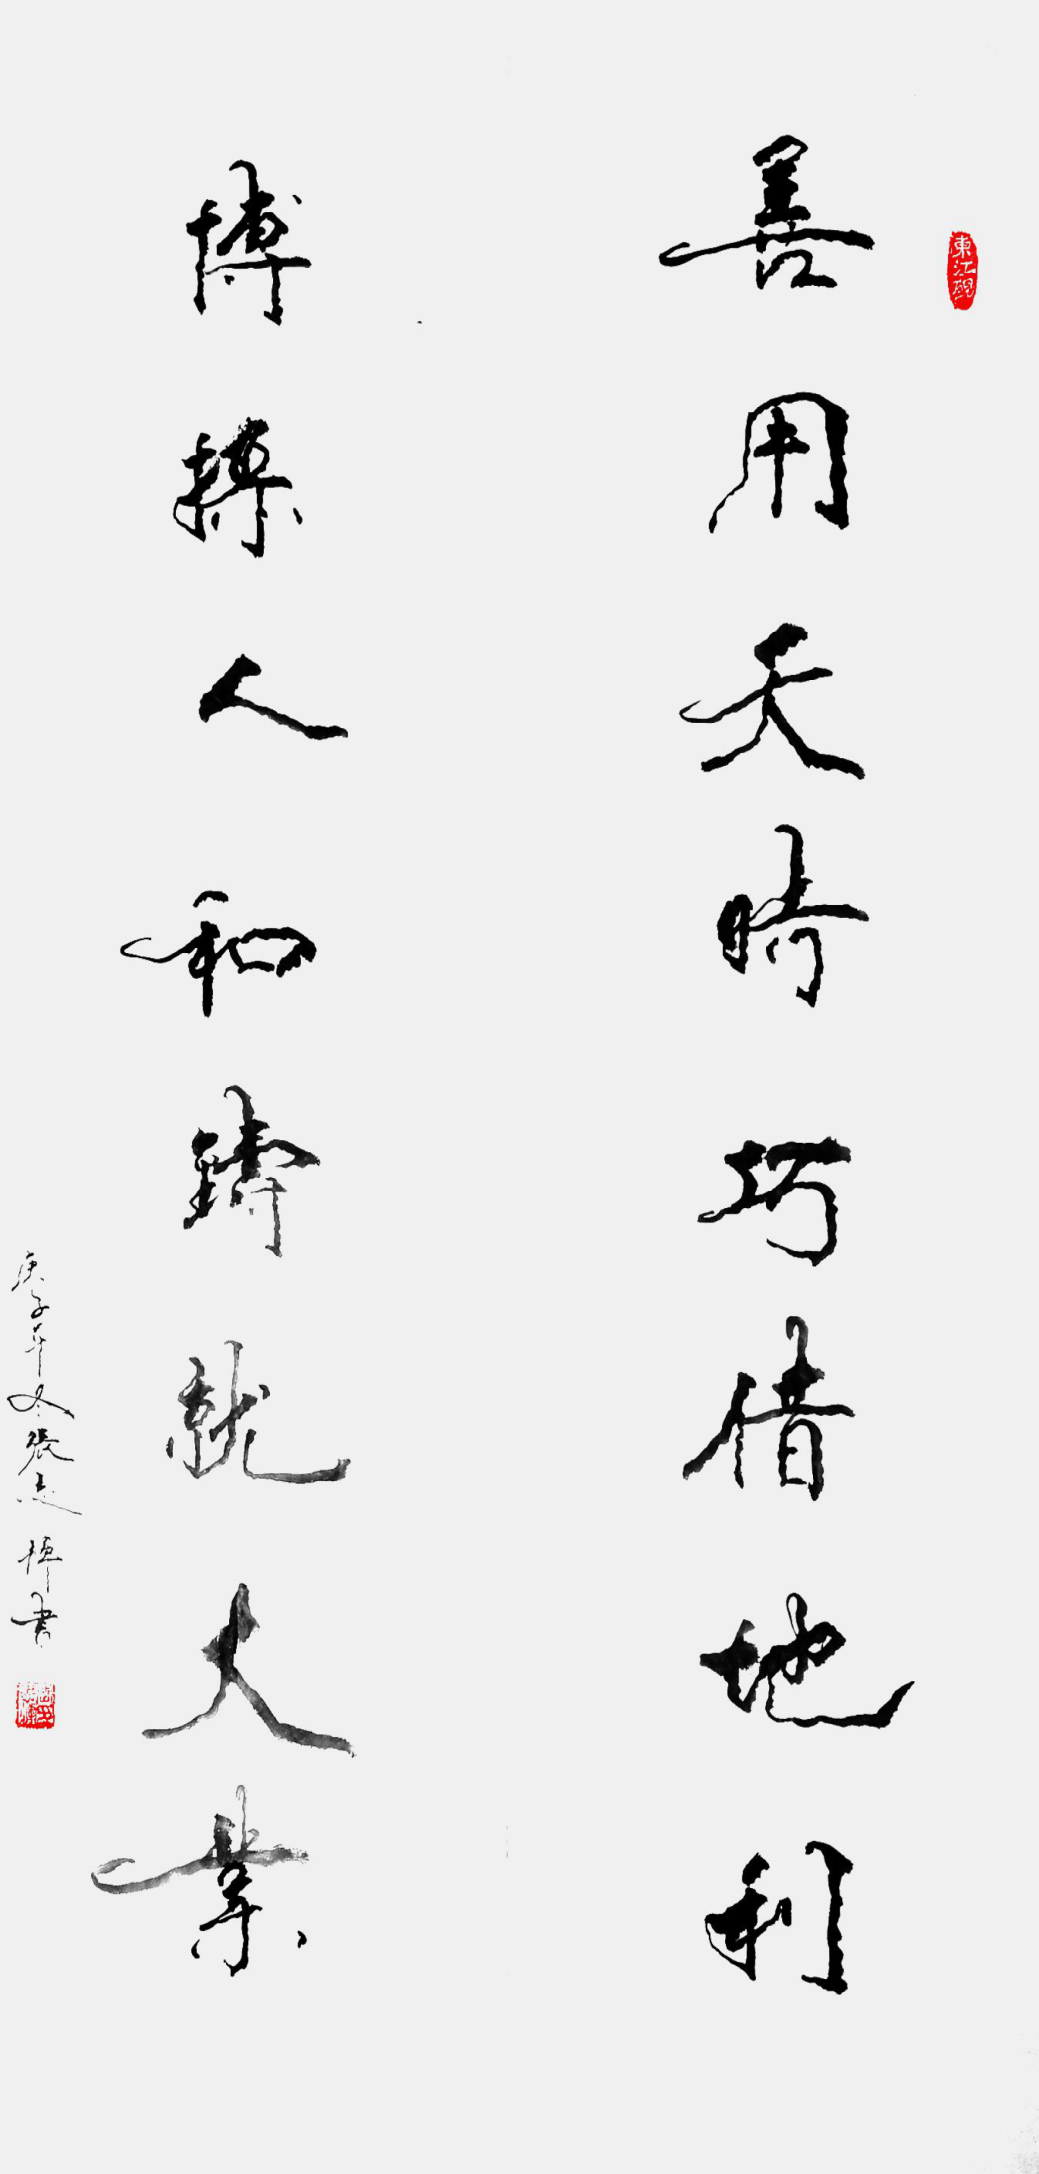 東江硯
善用天時巧借地利
博採人和鑄就大業
庚子年冬張書